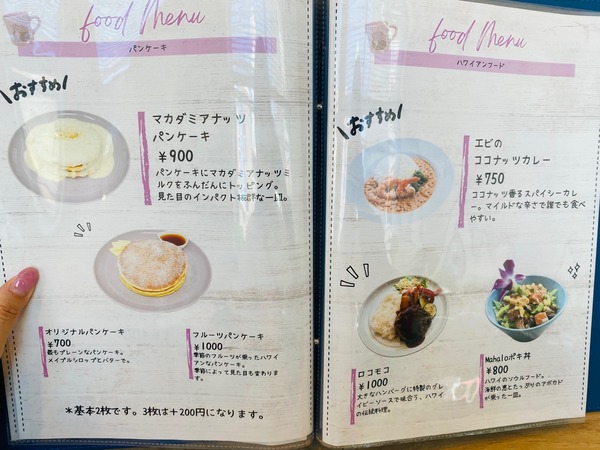 food Menu
パンケーキ
おすすめ
マカダミアナッツ
パンケーキ
￥900
パンケーキにマカダミアナッツミ
ルクをふんだんにトッピング。
見た目のインパクト抜群な一皿。
オリジナルパンケーキ
￥700
最もプレーンなパンケーキ。
メイプルシロップとバターで。
フルーツパンケーキ
￥1000
季節のフルーツが乗ったハワイ
アンなパンケーキ。
季節によって見た目も変わりま
す。
＊基本2枚です。3枚は＋200円になります。
food Menu
ハワイアンフード
おすすめ
エビの
ココナッツカレー
￥750
ココナッツ香るスパイシーカレ
ー。マイルドな辛さで誰でも食べ
やすい。
ロコモコ
￥1000
大きなハンバーグに特製のグレ
イビーソースで味合う、ハワイ
の伝統料理。
Mahaloポキ丼
￥800
ハワイのソウルフード。
海鮮の恵とたっぷりのアボカド
が乗った一皿。